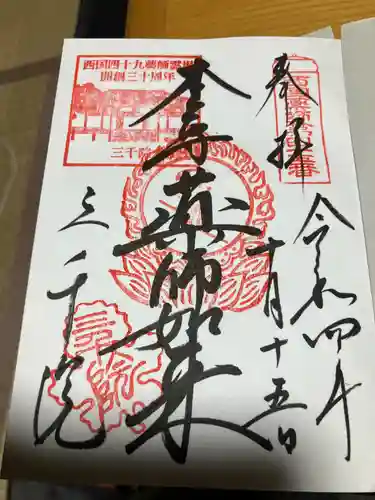 奉拝
令和四年
十月十五日
本尊薬師如来
三千院
西国四十九薬師霊場
開創三十周年
三千院